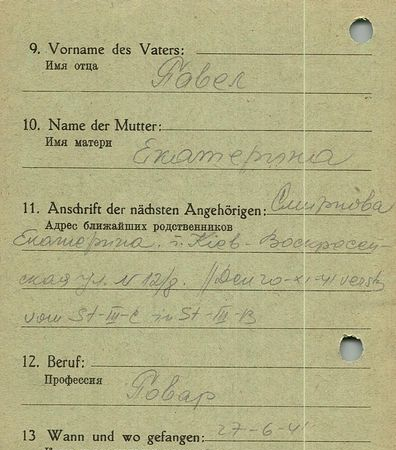 9. Vorname des Vaters:
Имя отца
Павел
10. Name der Mutter:
Имя матери
Екатерина
11. Anschrift der nächsten Angehörigen: Смирнова
Адрес ближайших родственников
Екатерина. г. Кіев- Воскресен-
ская ул. N 12/8. // Den 20-XI-41 versetz
vom St-III-C in St-III-B
12. Beruf:
Профессия
Повар
13 Wann und wo gefangen: 27-6-41